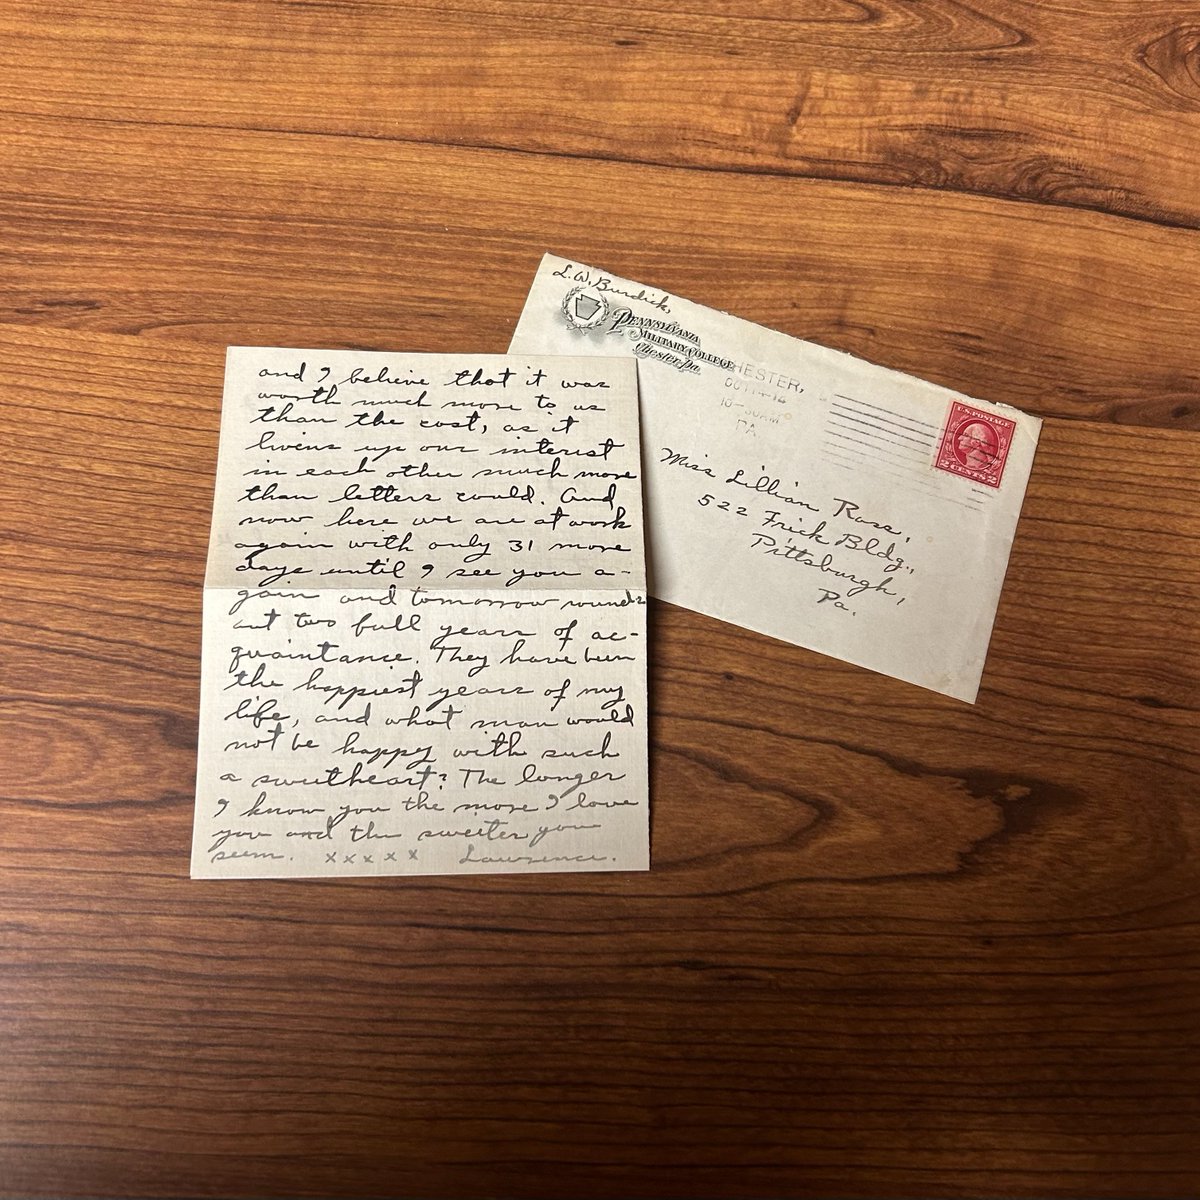 and I believe that it was
worth much more to us
than the cost, as it
livens up our interist
in each other much more
than letters could. And
now here we are at work
again with only 31 more
days until I see you a-
gain and tomorrow rounds
out two full years of ac-
quaintance. They have been
the happiest years of my
life, and what man would
not be happy with such
a sweetheart? The longer
I know you the more I love
you and the sweeter you
seem. x x x x x Lawrence.
L.W. Burdick,
PENNSYLVANIA
MILITARY COLLEGE
Chester, Pa.
CHESTER,
10-30AM
PA
U.S. POSTAGE
2 CENTS 2
Miss Lillian Ross,
522 Frick Bldg.,
Pittsburgh,
Pa.